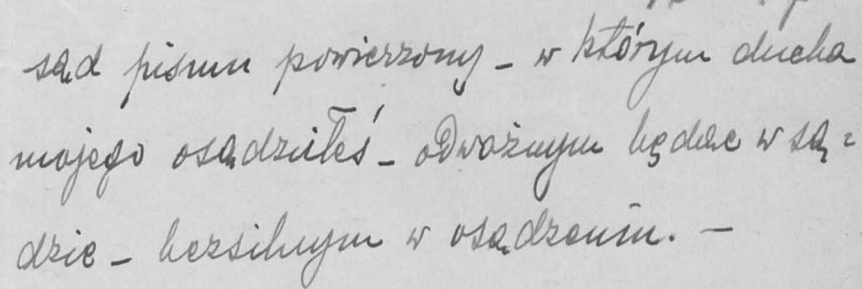 sąd pismu powierzony – w którym ducha
mojego osądziłeś – odważnym będąc w są=
dzie – bezsilnym w osądzeniu. –